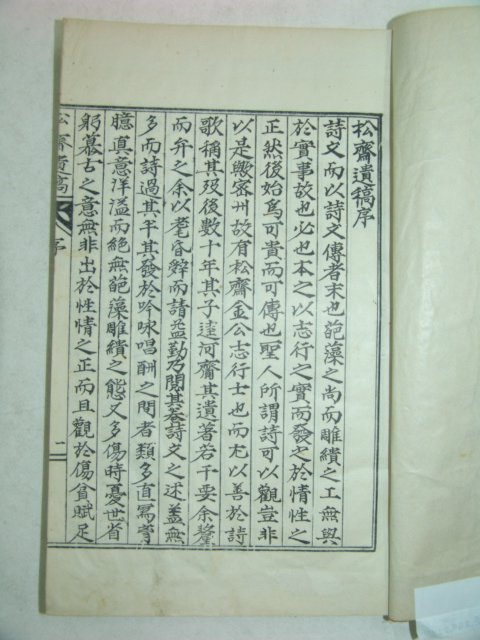 松齋遺稿序
詩文而以詩文傳者末也葩藻之尚而雕繢之工無與
於實事故也必也本之以志行之實而發之於情性之
正然後始爲可貴而可傳也聖人所謂詩可以觀豈非
以是歟密州故有松齋金公志行士也而尤以善於詩
歌稱其歿後數十年其子達河齎其遺著若干要余釐
而弁之余以耄昏辭而請益勤乃閱其藁詩文之述蓋無
多而詩過其半其發於吟咏唱酬之間者類多直寫胷
臆真意洋溢而絕無葩藻雕繢之態又多傷時憂世省
躬慕古之意無非出於性情之正而且觀於傷貧賦足
松齋遺稿 序 一